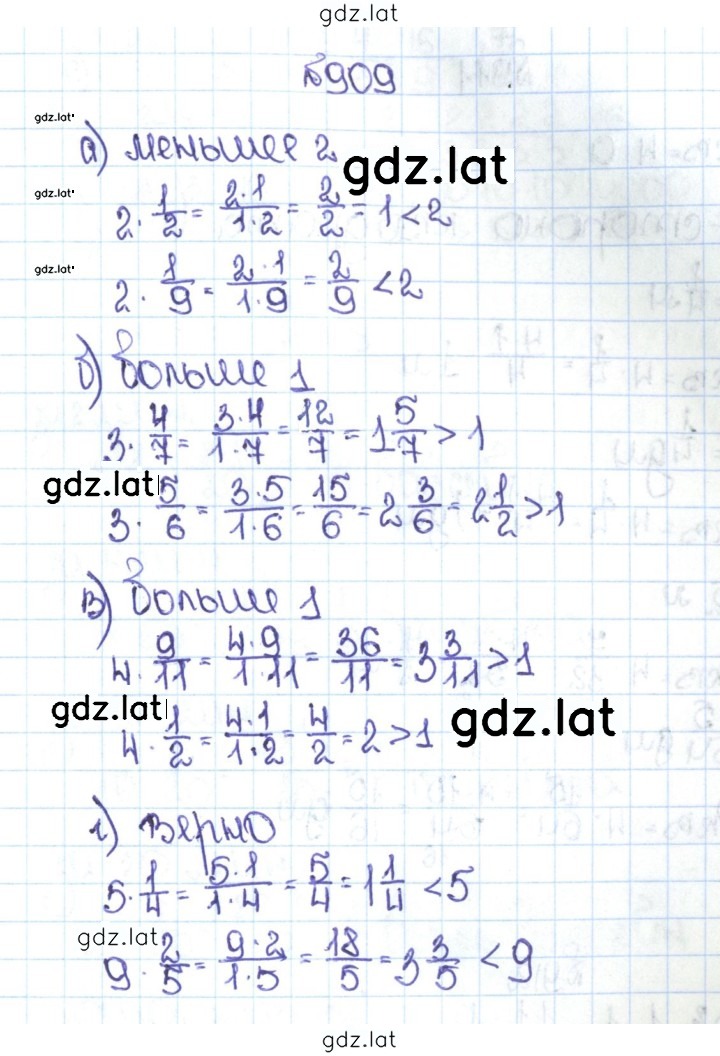 gdz.lat
№909
gdz.lat
а) меньшее 2
gdz.lat
gdz.lat
2 · 1/2 = 2·1/1·2 = 2/2 = 1 < 2
gdz.lat
2 · 1/9 = 2·1/1·9 = 2/9 < 2
б) больше 1
3 · 4/7 = 3·4/1·7 = 12/7 = 1 5/7 > 1
gdz.lat
3 · 5/6 = 3·5/1·6 = 15/6 = 2 3/6 = 2 1/2 > 1
в) больше 1
4 · 9/11 = 4·9/1·11 = 36/11 = 3 3/11 > 1
gdz.lat
gdz.lat
4 · 1/2 = 4·1/1·2 = 4/2 = 2 > 1
г) верно
5 · 1/4 = 5·1/1·4 = 5/4 = 1 1/4 < 5
gdz.lat
9 · 2/5 = 9·2/1·5 = 18/5 = 3 3/5 < 9
gdz.lat